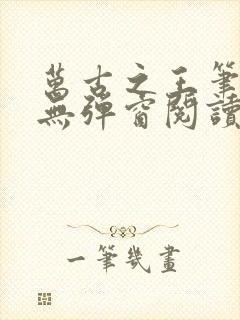 萬古之王筆
無彈窗閱讀
一筆幾畫